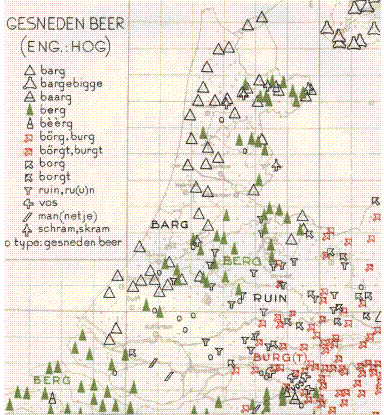 GESNEDEN BEER
(ENG.: HOG)
barg
bargebigge
baarg
berg
bèèrg
börg, burg
börgt, burgt
borg
borgt
ruin, ru(u)n
vos
man(netje)
schram, skram
o type: gesneden beer
BARG
BERG
RUIN
BURG(T)
BERG
VOS